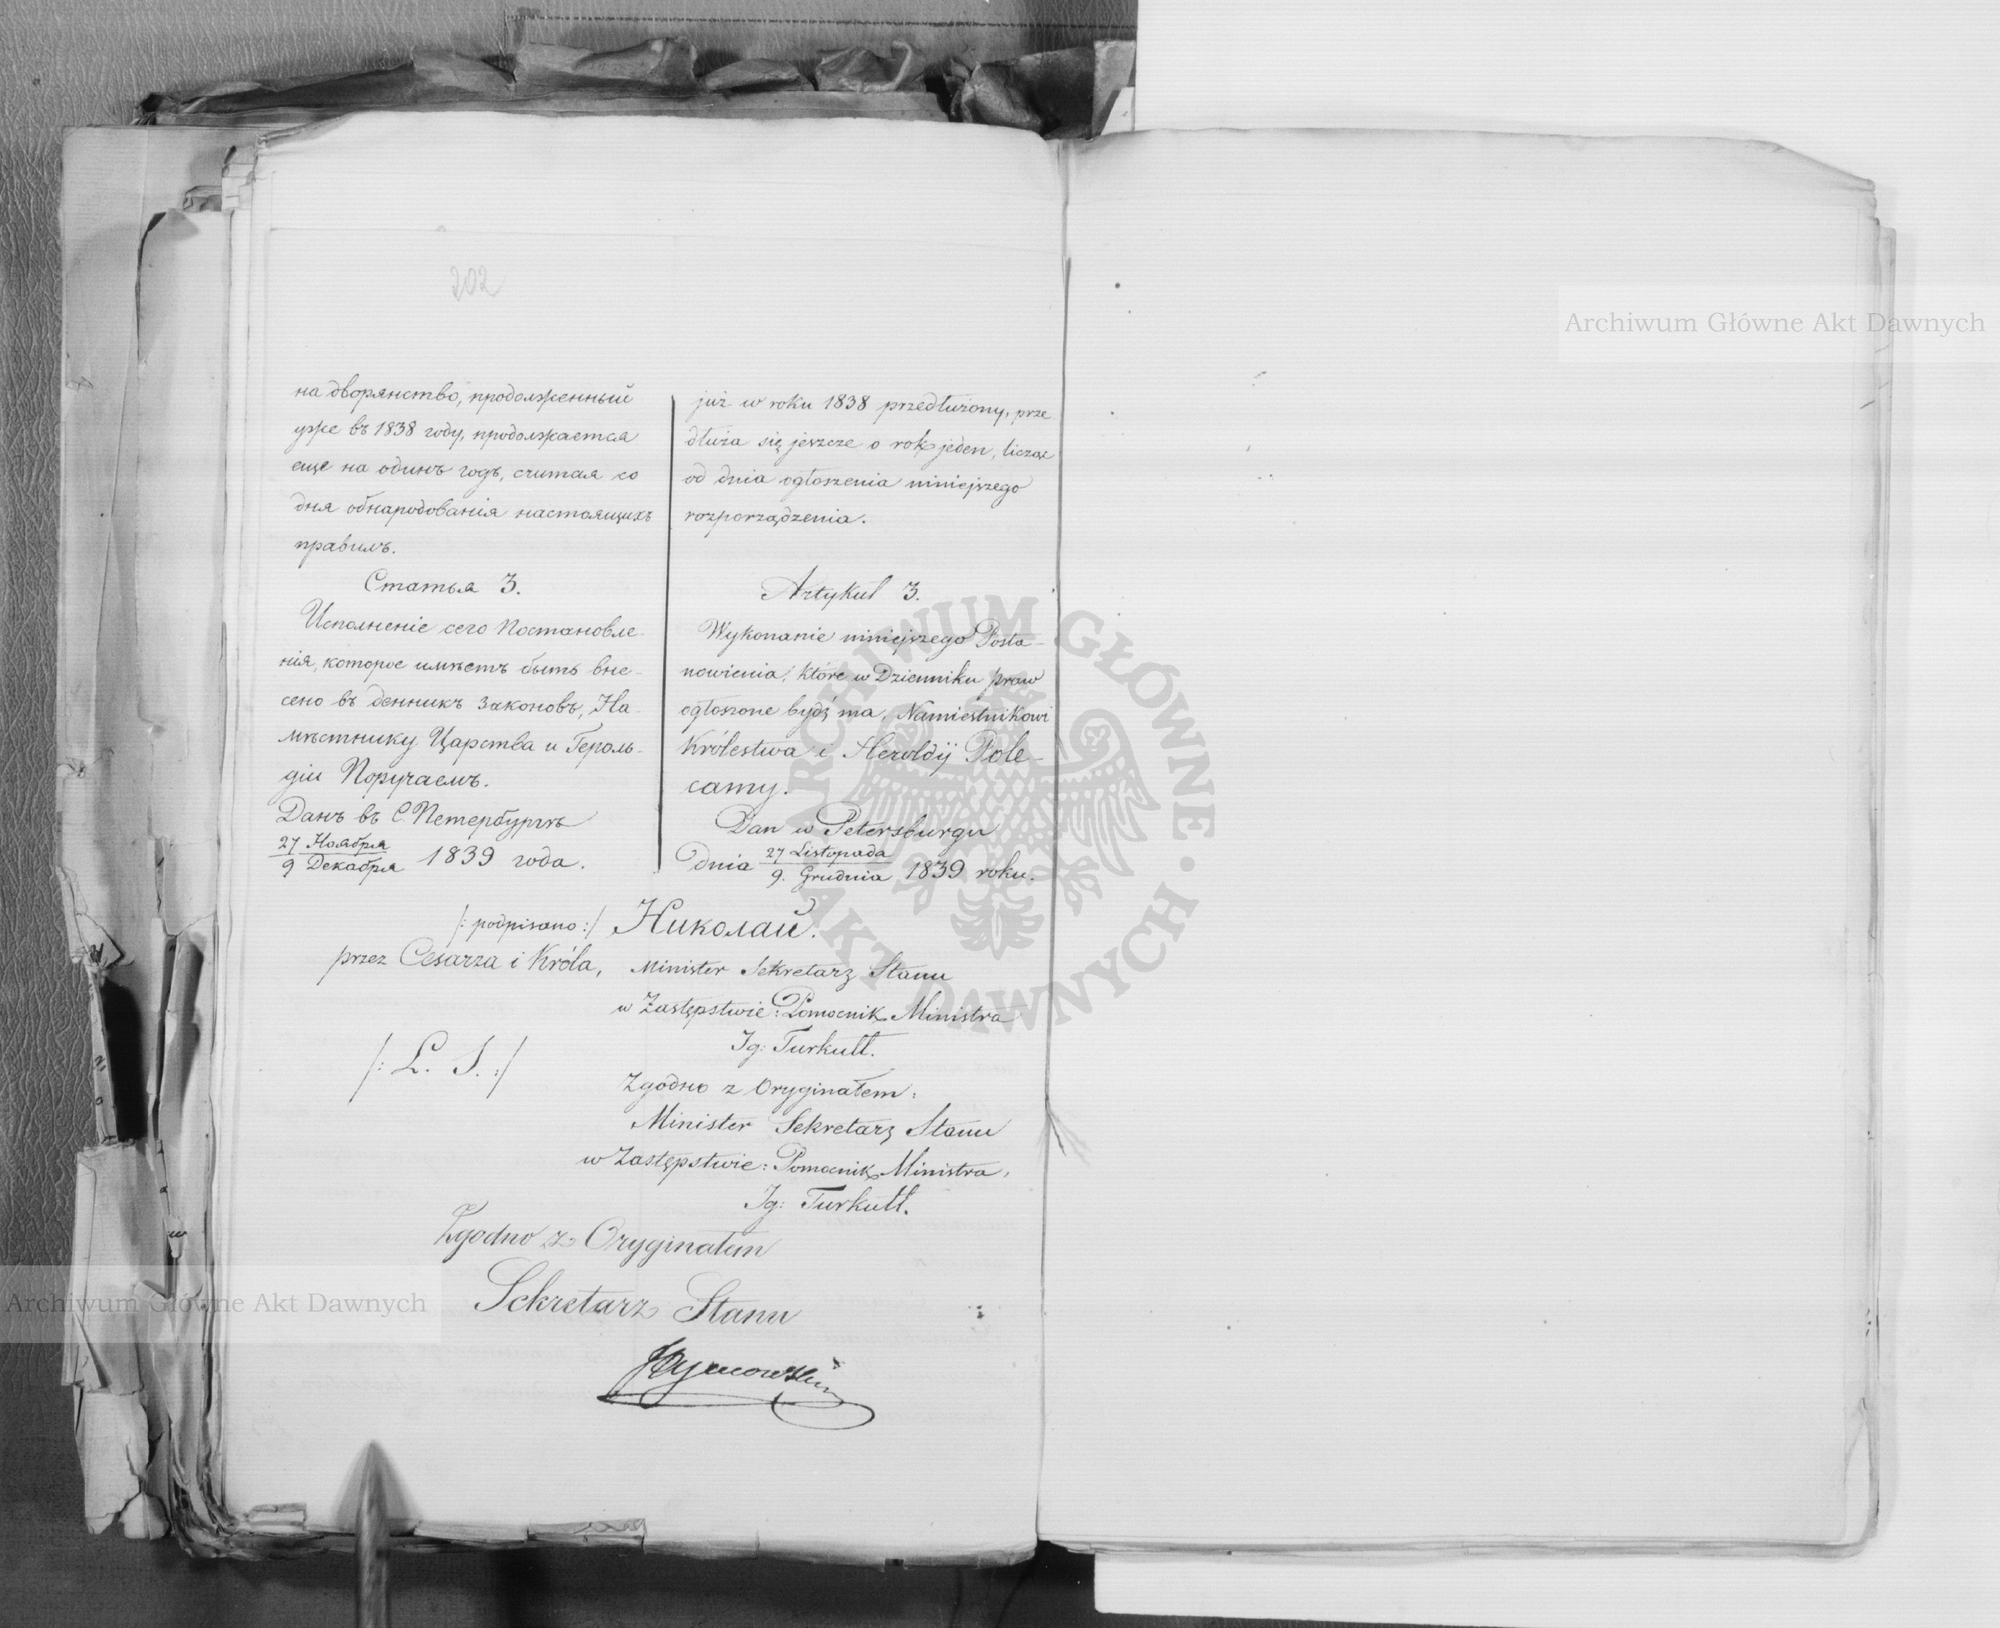 202
на дворянство, продолженный
уже въ 1838 году, продолжается
еще на одинъ годъ, считая со
дня обнародованія настоящихъ
правилъ.
Статья 3.
Исполненіе сего Постановле-
нія, которое имѣетъ быть вне-
сено въ денникъ законовъ, На-
мѣстнику Царства и Героль-
діи Поручаемъ.
Данъ въ С. Петербургѣ
27 Ноября
9 Декабря 1839 года.
już w roku 1838 przedłużony, prze
dłuża się jeszcze o rok jeden, licząc
od dnia ogłoszenia niniejszego
rozporządzenia.
Artykuł 3.
Wykonanie niniejszego Posta-
nowienia, które w Dzienniku praw
ogłoszone bydź ma, Namiestnikowi
Królestwa i Heroldij Pole-
camy.
Dan w Petersburgu
dnia 27 Listopada
9. Grudnia 1839 roku.
/: podpisano :/ Николай.
przez Cesarza i Króla, Minister Sekretarz Stanu
w Zastępstwie: Pomocnik Ministra
/: L. S. :/
Ig: Turkułł.
Zgodno z Oryginałem:
Minister Sekretarz Stanu
w Zastępstwie: Pomocnik Ministra,
Ig: Turkułł.
Zgodno z Oryginałem
Sekretarz Stanu
Archiwum Główne Akt Dawnych
Archiwum Główne Akt Dawnych
ARCHIWUM GŁÓWNE AKT DAWNYCH